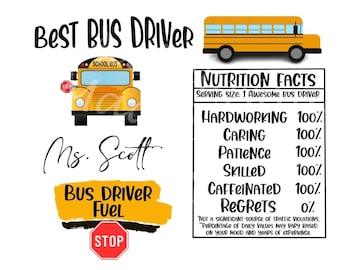 Best Bus Driver
SCHOOL BUS
Ms. Scott
Bus Driver
Fuel
STOP
Nutrition Facts
Serving size: 1 Awesome Bus Driver
Hardworking 100%
Caring 100%
Patience 100%
Skilled 100%
Caffeinated 100%
Regrets 0%
*Not a significant source of traffic violations.
*Percentage of daily values may vary based
on your mood and years of experience.